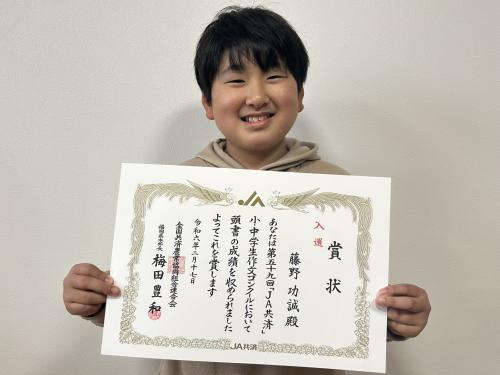 JA
賞状
入選
藤野 功誠 殿
あなたは第五十九回「JA共済」
小・中学生作文コンクールにおいて
頭書の成績を収められました
よってこれを賞します
令和六年二月十七日
全国共済農業協同組合連合会
梅田豊和
JA共済